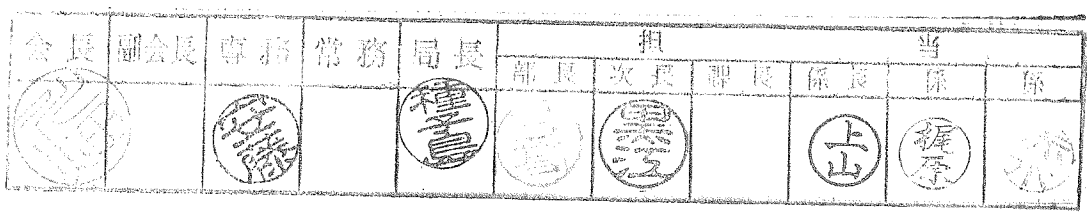 会長 副会長 専務 常務 局長 担当
部長 次長 課長 係長 係 係
安藤 種子島 黒江 上山 梶原